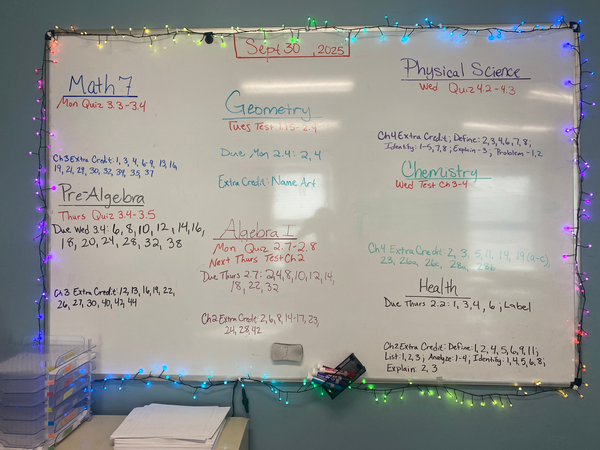 Sept 30, 2025
Math 7
Mon Quiz 3.3-3.4
Ch3 Extra Credit: 1, 3, 4, 6-9, 13, 16,
19, 21, 29, 30, 32, 34, 35, 37
Pre-Algebra
Thurs Quiz 3.4-3.5
Due Wed 3.4: 6, 8, 10, 12, 14, 16,
18, 20, 24, 28, 32, 38
Ch 3 Extra Credit: 12, 13, 16, 19, 22,
26, 27, 30, 40, 42, 44
Geometry
Tues Test 1.15-2.4
Due Mon 2.4: 2, 4
Extra Credit: Name Art
Algebra I
Mon Quiz 2.7-2.8
Next Thurs Test Ch 2
Due Thurs 2.7: 2, 4, 8, 10, 12, 14,
18, 22, 32
Ch2 Extra Credit 2, 6, 8, 14-17, 23,
24, 28, 42
Physical Science
Wed Quiz 4.2-4.3
Ch4 Extra Credit: Define: 2, 3, 4, 6, 7, 8;
Identify: 1-5, 7, 8; Explain-3; Problem-1, 2
Chemistry
Wed Test Ch 3-4
Ch4 Extra Credit: 2, 3, 5, 11, 14, 19(a-c),
23, 26a, 26c, 28a, 28b
Health
Due Thurs 2.2: 1, 3, 4, 6; Label
Ch2 Extra Credit: Define: 1, 2, 4, 5, 6, 9, 11;
List: 1, 2, 3; Analyze: 1-4; Identify: 1, 4, 5, 6, 8;
Explain: 2, 3